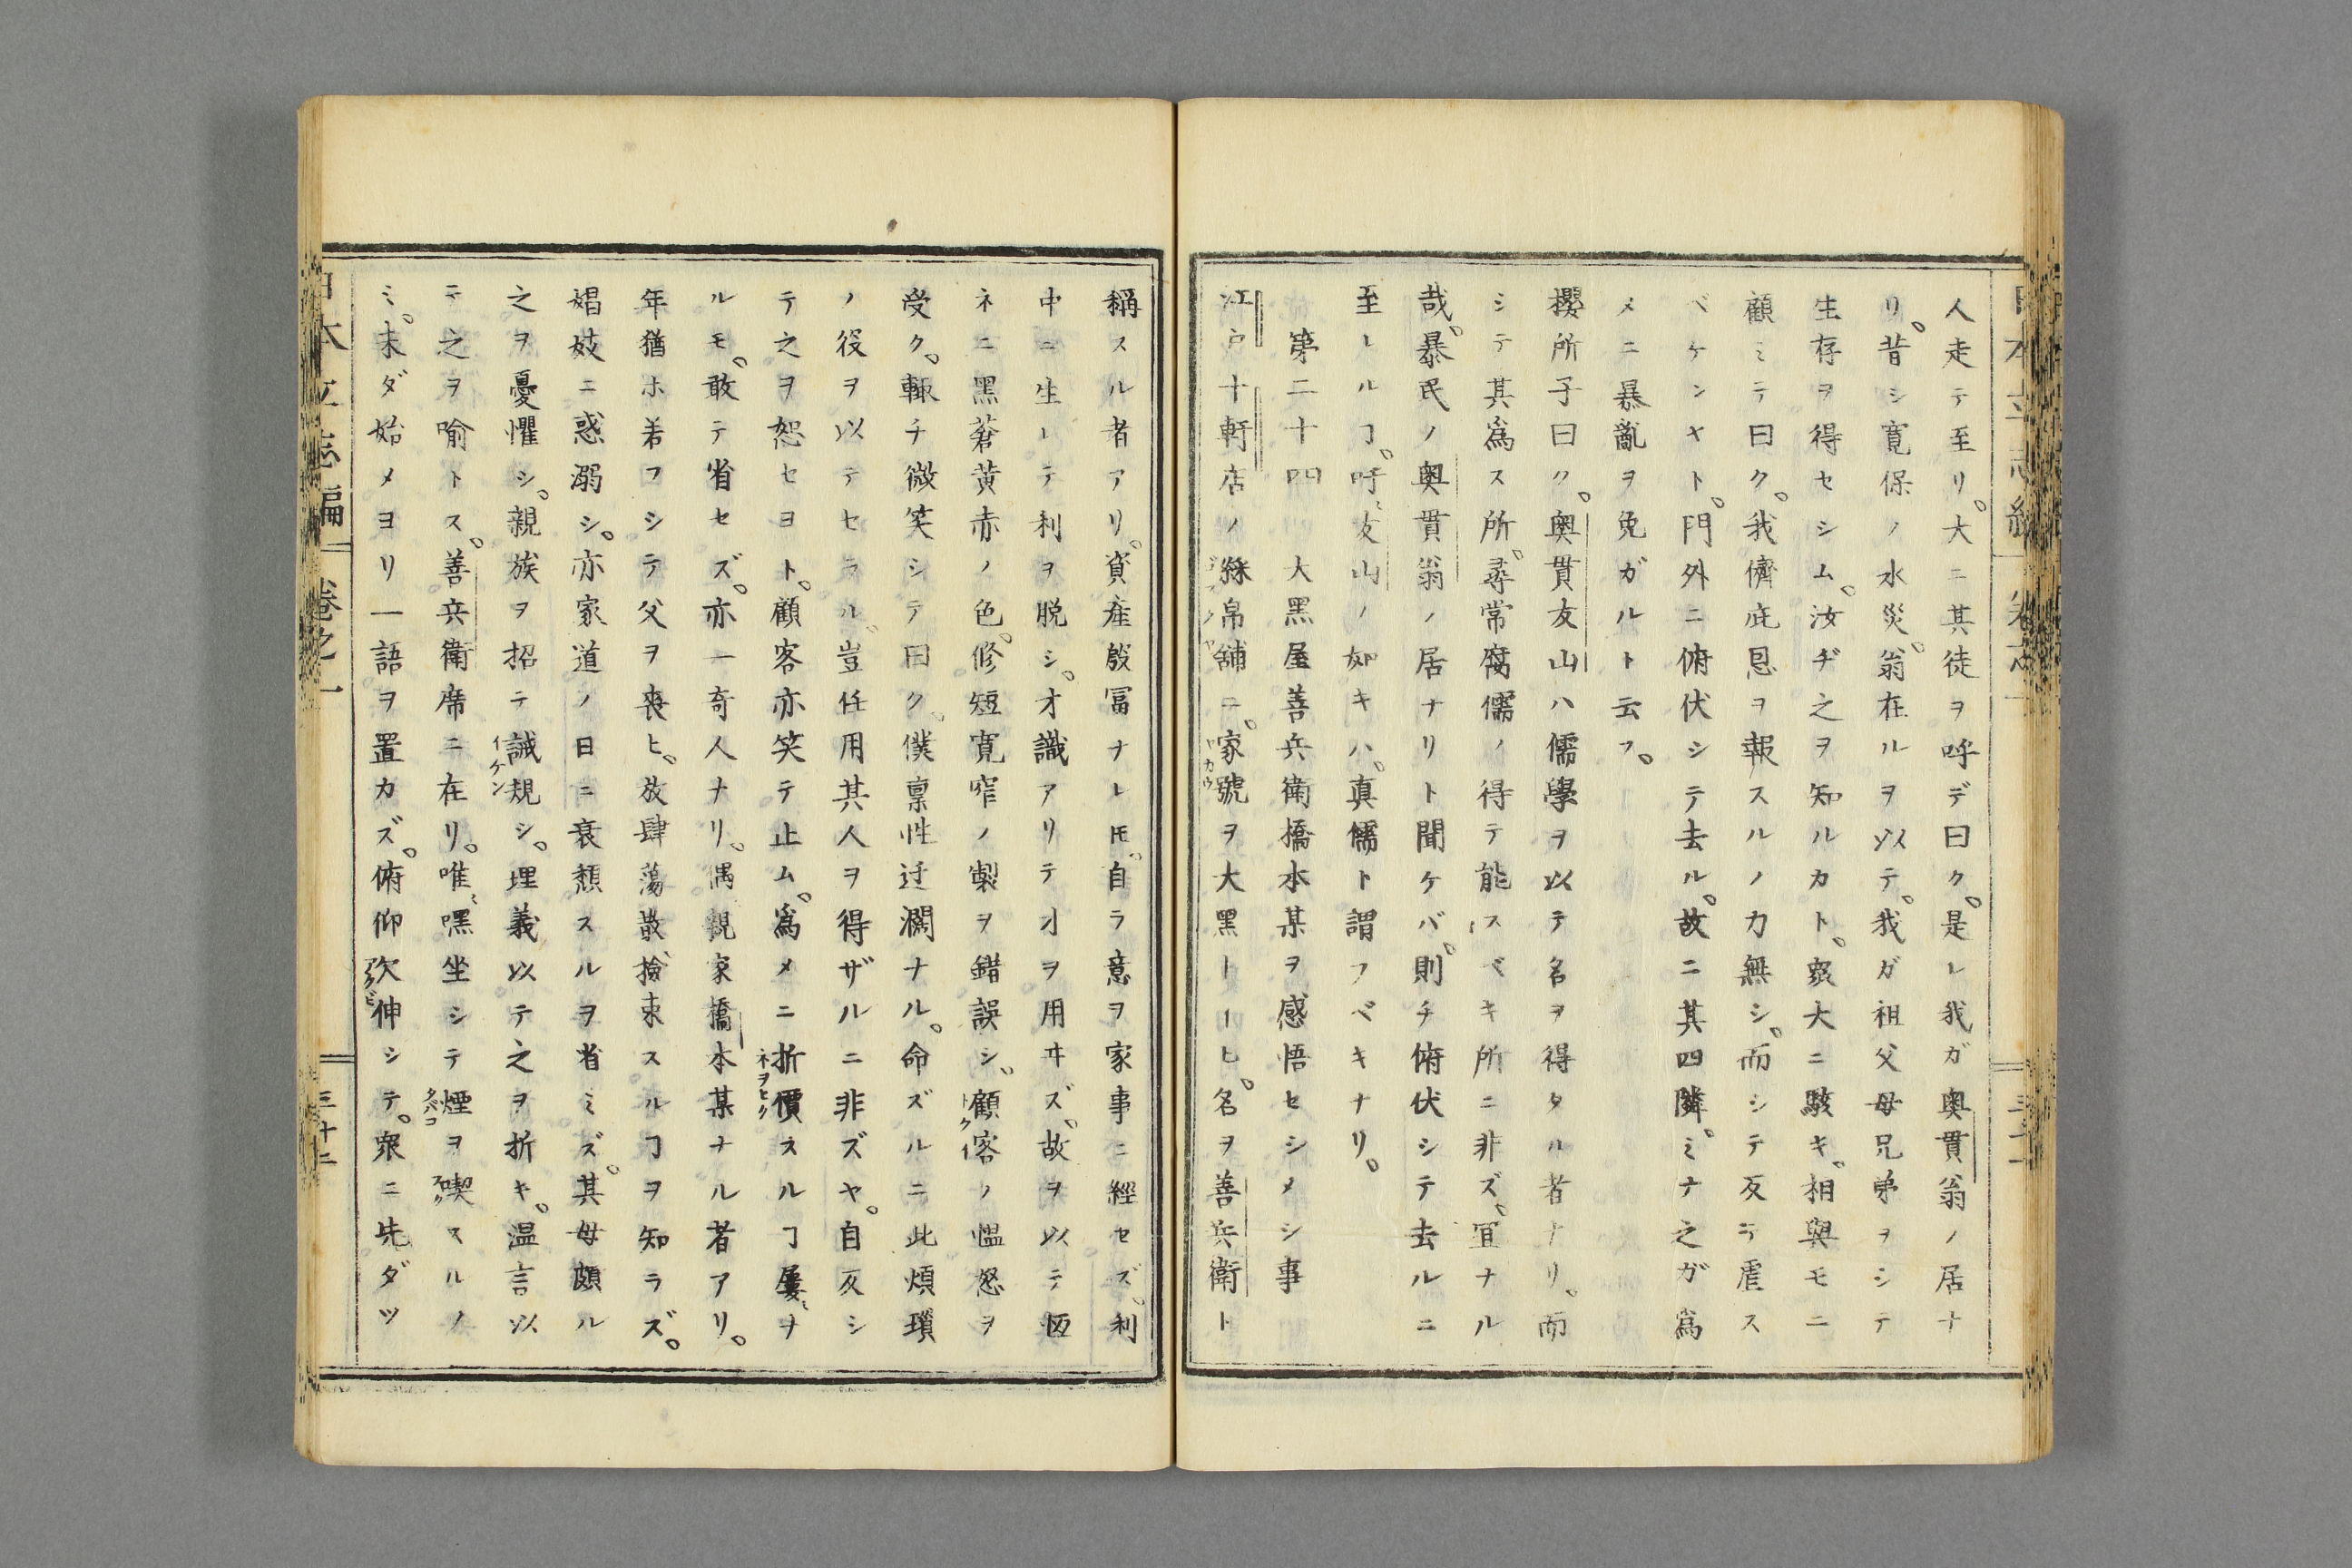 人走テ至リ。大ニ其徒ヲ呼デ曰ク。是レ我ガ奥貫翁ノ居ナ
リ。昔シ寛保ノ水災。翁在ルヲ以テ。我ガ祖父母兄弟ヲシテ
生存ヲ得セシム。汝ヂ之ヲ知ルカト。衆大ニ駭キ。相與モニ
顧ミテ曰ク。我儕庇恩ヲ報スルノ力無シ。而シテ反テ虐ス
ベケンヤト。門外ニ俯伏シテ去ル。故ニ其四隣ミナ之ガ為
メニ暴亂ヲ免ガルト云フ。
櫻所子曰ク。奥貫友山ハ儒學ヲ以テ名ヲ得タル者ナリ。而
シテ其爲ス所。尋常腐儒ノ得テ能スベキ所ニ非ズ。宜ナル
哉。暴民ノ奥貫翁ノ居ナリト聞ケバ。則チ俯伏シテ去ルニ
至レルヿ。吁友山ノ如キハ。真儒ト謂フベキナリ。
第二十四 大黑屋善兵衛橋本某ヲ感悟セシメシ事
江戸十軒店ノ絲帛舖ニ。家號ヲ大黑トーヒ。名ヲ善兵衛ト
稱スル者アリ。資産殷冨ナレ𪜈。自ラ意ヲ家事ニ經セズ。利
中ニ生レテ利ヲ脱シ。才識アリテ才ヲ用ヰズ。故ヲ以テ恆
ネニ黑蒼黄赤ノ色。修短寛窄ノ製ヲ錯誤シ。顧客ノ慍怒ヲ
受ク。輙チ微笑シテ曰ク。僕禀性迂濶ナル。命ズルニ此煩瑣
ノ役ヲ以テセラル。豈任用其人ヲ得ザルニ非ズヤ。自反シ
テ之ヲ恕セヨト。顧客亦笑テ止ム。爲メニ折價スルヿ屢ヲナ
ルモ。敢テ省セズ。亦一奇人ナリ。偶親家橋本某ナル者アリ。
年猶ホ若フシテ父ヲ喪ヒ。放肆蕩散、撿束スルヿヲ知ラズ。
娼妓ニ惑溺シ。亦家道ノ日ニ衰頽スルヲ省ミズ。其母頗ル
之ヲ憂懼シ。親族ヲ招テ誡規シ。理義以テ之ヲ折キ。温言以
テ之ヲ喩トス。善兵衛席ニ在リ。唯嘿坐シテ煙ヲ喫スルノ
ミ。未ダ始メヨリ一語ヲ置カズ。俯仰欠伸シテ。衆ニ先ダツ
日本立志編 卷之一 三十二